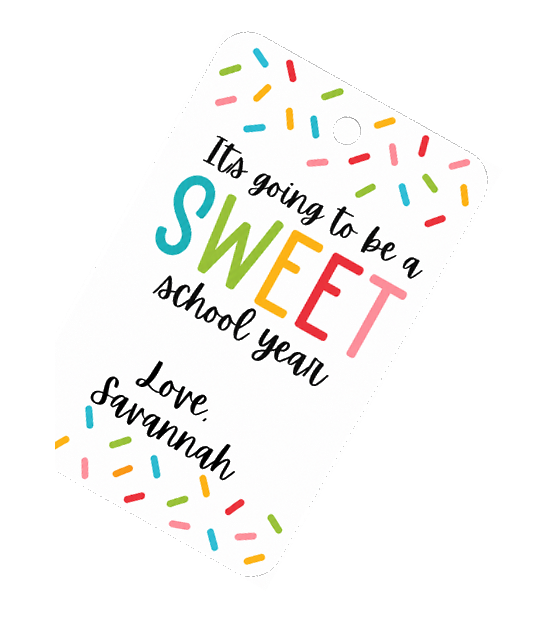 Its going to be a
SWEET
school year
Love,
Savannah